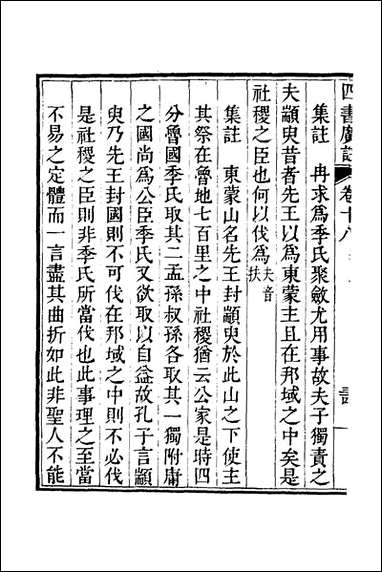 四書廣註 卷十八
集註 冉求爲季氏聚斂尤用事故夫子獨責之
夫顓臾昔者先王以爲東蒙主且在邦域之中矣是
社稷之臣也何以伐爲夫音扶
集註 東蒙山名先王封顓臾於此山之下使主
其祭在魯地七百里之中社稷猶云公家是時四
分魯國季氏取其二孟孫叔孫各取其一獨附庸
之國尚爲公臣季氏又欲取以自益故孔子言顓
臾乃先王封國則不可伐在邦域之中則不必伐
是社稷之臣則非季氏所當伐也此事理之至當
不易之定體而一言盡其曲折如此非聖人不能